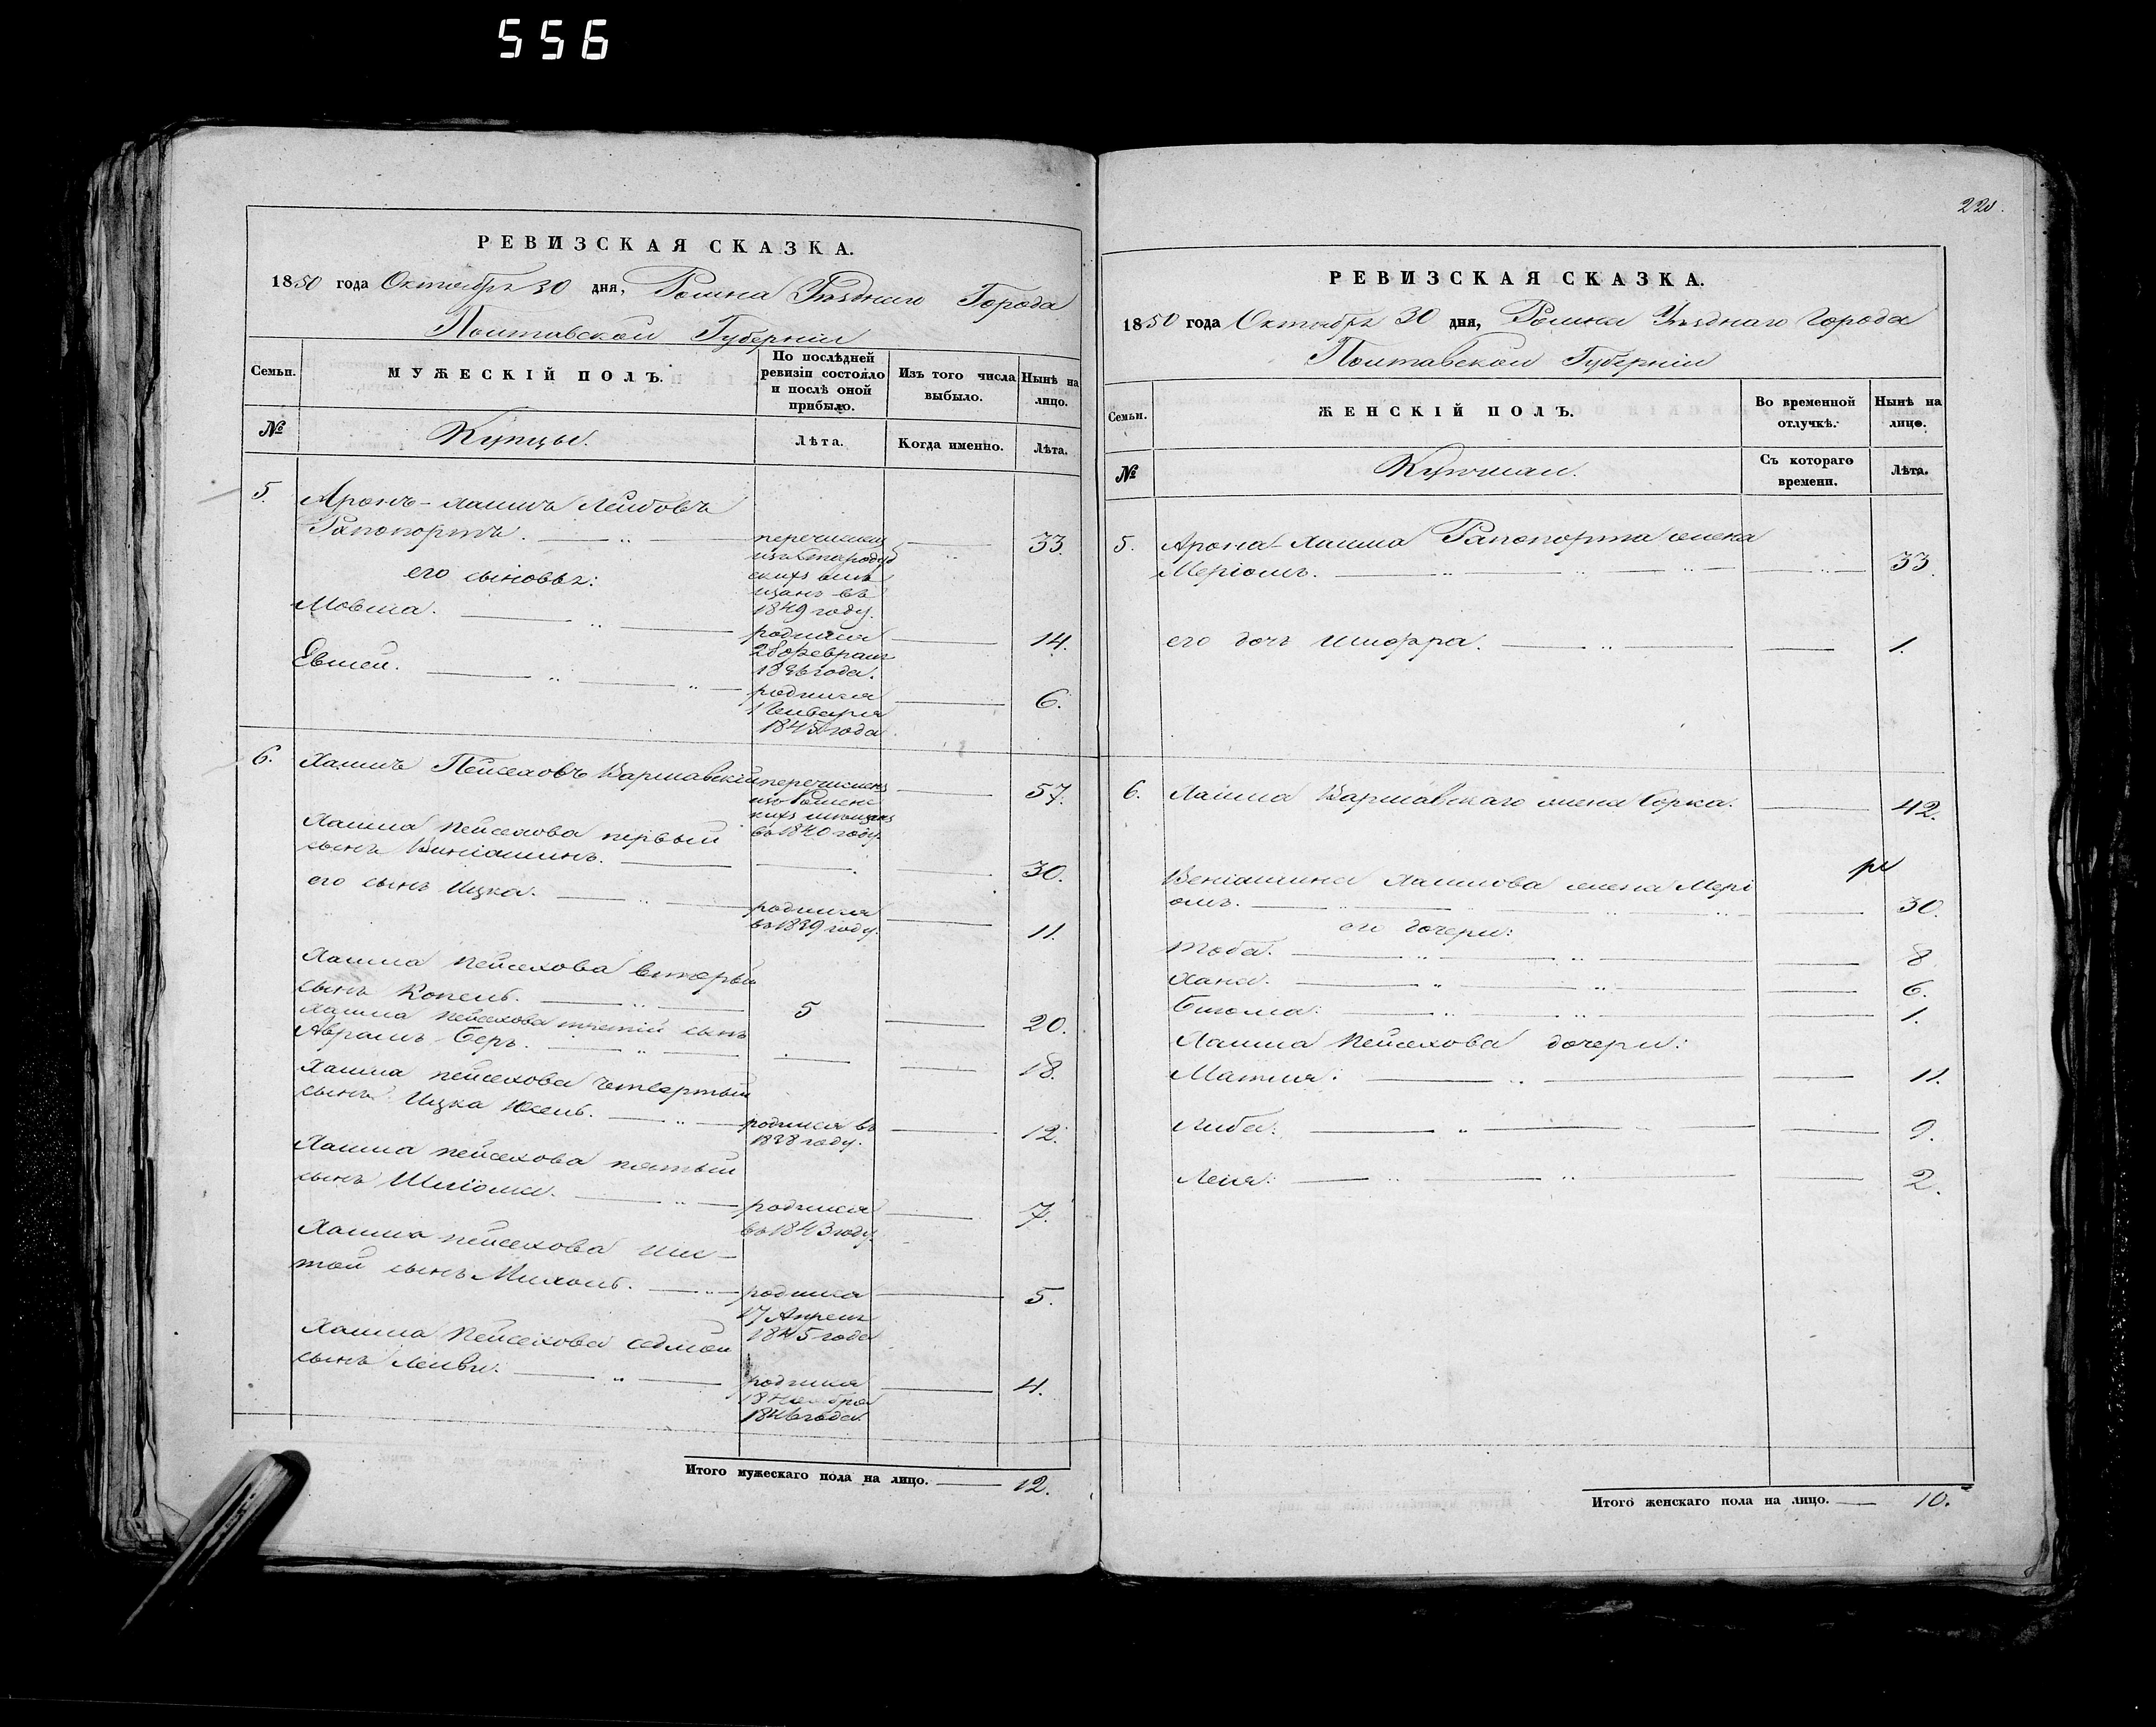 556
РЕВИЗСКАЯ СКАЗКА.
1850 года Октября 30 дня, Ромна Уѣзднаго Города
Полтавской Губерніи
Семьи.
МУЖЕСКІЙ ПОЛЪ.
По послѣдней ревизіи состояло и послѣ оной прибыло.
Изъ того числа выбыло.
Нынѣ на лицо.
№
Купцы.
Лѣта.
Когда именно.
Лѣта.
5. Аронъ-Хаимъ Лейбовъ
Рапопортъ. перечисленъ 33.
изъ Стародуб
скихъ мѣ
щанъ въ
1849 году.
его сыновья:
Мовша. родился 14.
28 Февраля
1836 года.
Евшей. родился 6.
1 Генваря
1845 года
6. Хаимъ Пейсеховъ Варшавскій перечисленъ 57.
изъ Ромен
кихъ мѣщанъ
въ 1840 году.
Хаима Пейсехова первый
сынъ Веніаминъ. 30.
его сынъ Ицка. родился 11.
въ 1839 году.
Хаима Пейсехова вторый
сынъ Копель. 5 20.
Хаима Пейсехова третій сынъ
Авраамъ Беръ. 18.
Хаима Пейсехова четвертый
сынъ Ицка Юсель. родился въ 12.
1838 году.
Хаима Пейсехова пятый
сынъ Шліома. родился 7.
въ 1843 году.
Хаима Пейсехова шес-
той сынъ Михель. родился 5.
17 Апреля
1845 года
Хаима Пейсехова седмой
сынъ Лейви. родился 4.
18 Ноября
1846 года.
Итого мужескаго пола на лицо. 12.
220.
РЕВИЗСКАЯ СКАЗКА.
1850 года Октября 30 дня, Ромна Уѣзднаго Города
Полтавской Губерніи
Семьи.
ЖЕНСКІЙ ПОЛЪ.
Во временной отлучкѣ.
Нынѣ на лицо.
№
Съ котораго времени.
Лѣта.
5. Арона-Хаима Рапопорта жена
Меріомъ. 33.
его дочь Шифра. 1.
6. Хаима Варшавскаго жена Сорка. 42.
Веніамина Хаимова жена Мері
омъ. 30.
его дочери:
Тоба. 8.
Хана. 6.
1.
Хаима Пейсехова дочери:
Матля: 11.
Либа: 9.
Лея: 2.
Итого женскаго пола на лицо. 10.